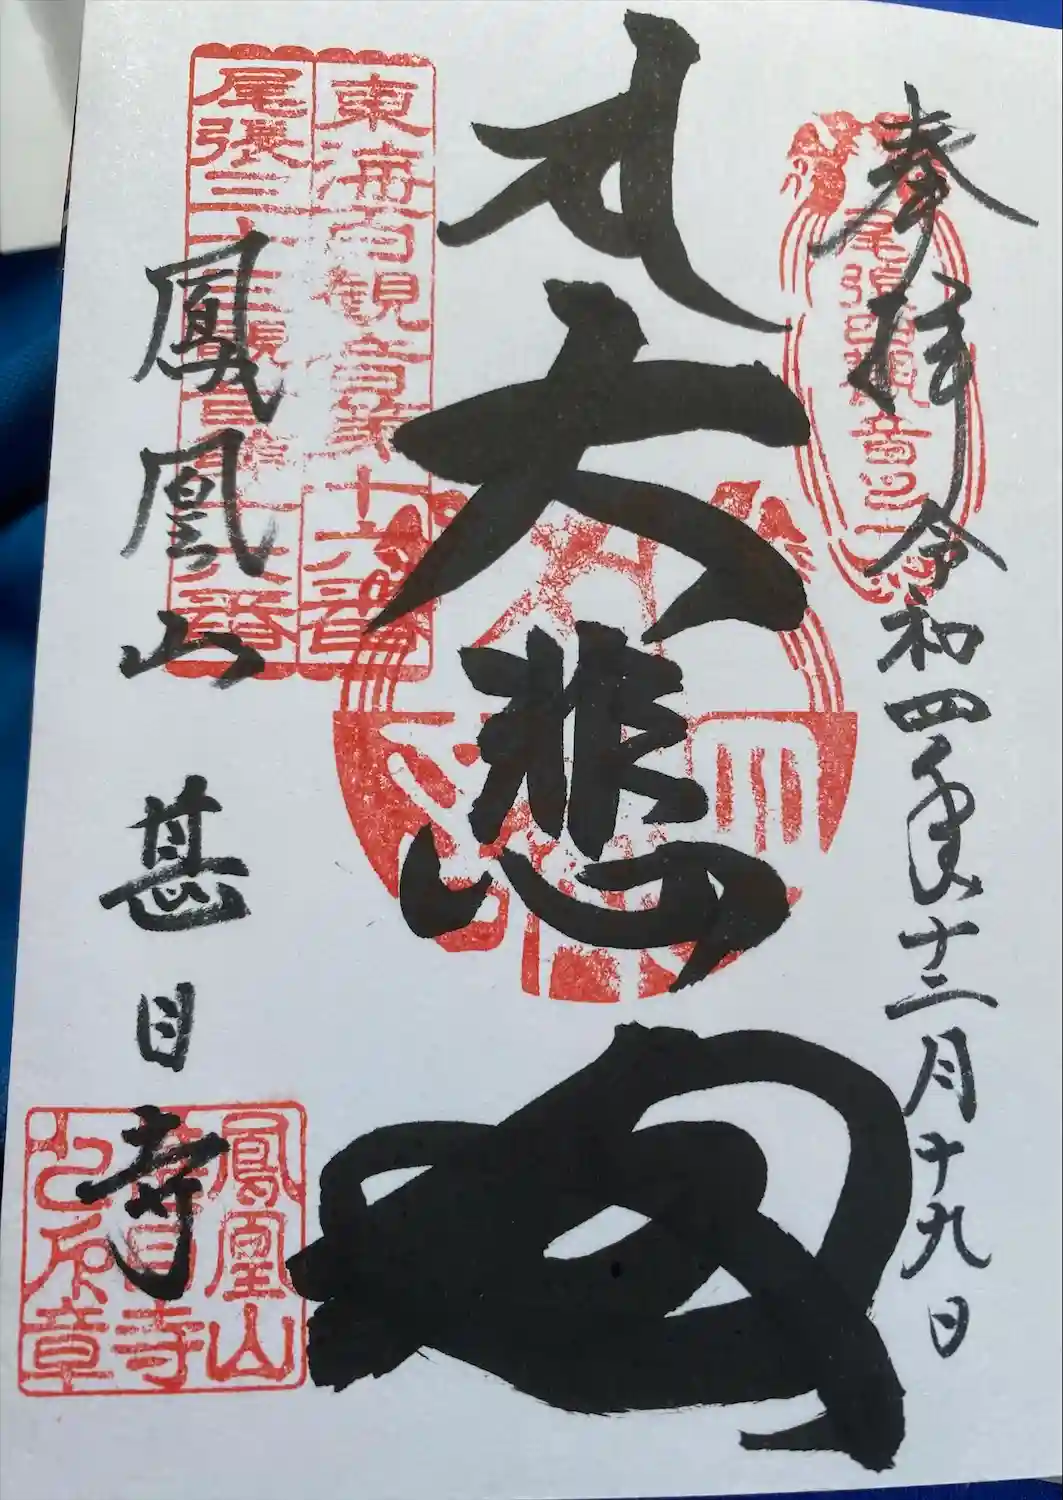 奉拝 令和四年十二月十九日
尾張四観音之一
大悲
東海百観音第十六番
尾張三十三観音第十六番
鳳凰山 甚目寺
鳳凰山
甚目寺
之印章